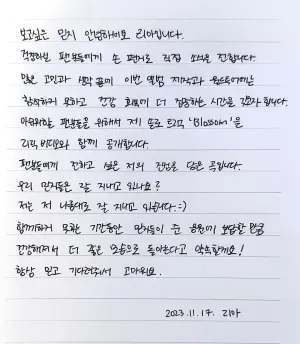 보고싶은 믿지 안녕하세요 리아입니다.
걱정하실 팬분들에게 손 편지로 직접 소식을 전합니다.
많은 고민과 생각 끝에 이번 앨범 제작과 월드투어에는
참석하지 못하고 건강 회복에 더 집중하는 시간을 갖고자 합니다.
아쉬워하실 팬분들을 위해서 제 솔로 트랙 'Blossom'을
리릭 비디오와 함께 공개합니다.
팬분들에게 전하고 싶은 저의 진심을 담은 곡입니다.
우리 믿지들은 잘 지내고 있나요?
저는 저 나름대로 잘 지내고 있답니다. :)
함께하지 못한 기간동안 믿지들이 준 응원에 보답할 만큼
건강해져서 더 좋은 모습으로 돌아온다고 약속할게요!
항상 믿고 기다려줘서 고마워요.
2023.11.17. 리아